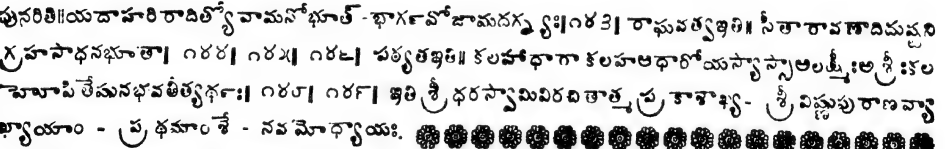 పునరితి॥యదాహరిరాదిత్యోవామనోభూత్ - భార్గవోజామదగ్న్యః।౧౪౩। రాఘవత్వఇతి॥ సీతారావణాదిదుష్టని
గ్రహసాధనభూతా। ౧౪౪। ౧౪౫। ౧౪౬। పఠ్యతఇతి॥ కలహాధారా కలహఆధారోయస్యాస్సాఅలక్ష్మీః
తేషునభవతీత్యర్థః। ౧౪౮। ౧౪౯। ఇతి శ్రీధరస్వామివిరచితాత్మ ప్రకాశాఖ్య - శ్రీవిష్ణుపురాణవ్యా
ఖ్యాయాం - ప్రథమాంశే - నవమోధ్యాయః.